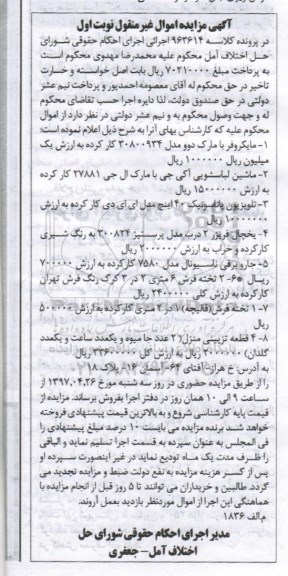 آگهی مزایده اموال غیرمنقول نوبت اول
در پرونده کلاسه ۹۶۳۶۱۴ اجرائی اجرای احکام حقوقی شورای
حل اختلاف آمل محکوم علیه محمدرضا مهدوی محکوم است
به پرداخت مبلغ ۷۰۲۱۰۰۰۰ ریال بابت اصل خواسته و خسارت
تاخیر در حق محکوم له آقای معصومه احمدپور و پرداخت نیم عشر
دولتی در حق صندوق دولت، لذا دایره اجرا حسب تقاضای محکوم
له و جهت وصول محکوم به و نیم عشر دولتی در نظر دارد از اموال
محکوم علیه که کارشناس بهای آنرا به شرح ذیل اعلام نموده است:
۱- مایکروفر با مارک دوو مدل ۳۰۸۰۰۹۳۴ کار کرده به ارزش یک
میلیون ریال ۱۰۰۰۰۰۰ ریال
۲- ماشین لباسشویی آکی جی با مارک ال جی ۲۷۸۸۱ کار کرده
به ارزش ۱۵۰۰۰۰۰۰ ریال
۳- تلویزیون پاناسونیک ۴۰ اینچ مدل ای ای دی کار کرده به ارزش
۱۰۰۰۰۰۰۰ ریال
۴- یخچال فریزر ۲ درب مدل پرستیژ ۲۰۰۸۲۴ به رنگ شیری
کارکرده و خراب به ارزش ۲۰۰۰۰۰۰ ریال
۵- جارو برقی ناسیونال مدل ۷۵۸۰ کارکرده به ارزش ۷۰۰۰۰۰
ریال ۶- ۲ تخته فرش ۶ متری ۲ در ۳ کرک رنگ فرش تهران
کارکرده به ارزش کلی ۲۴۰۰۰۰۰ ریال
۷- ۱ تخته فرش (قالیچه) ۱ در ۲ متری کارکرده به ارزش ۵۰۰۰۰۰
ریال
۸- ۴ قطعه تزیینی منزل( ۲ عدد جا میوه و یکعدد ساعت و یکعدد
گلدان) ۲۰۰۰۰۰۰ ریال به ارزش کل ۳۳۶۰۰۰۰۰ ریال
به آدرس: خ هراز- آفتاب ۶۴- آسمان ۱۶- پلاک ۱۸
را از طریق مزایده حضوری در روز سه شنبه مورخ ۱۳۹۷.۰۴.۲۶ از
ساعت ۹ الی ۱۰ همان روز در دفتر اجرا بفروش برساند. مزایده از
قیمت پایه کارشناسی شروع و به بالاترین قیمت پیشنهادی فروخته
خواهد شد برنده مزایده می بایست ۱۰ درصد مبلغ پیشنهادی را
فی المجلس به عنوان سپرده به قسمت اجرا تسلیم نماید و الباقی
را ظرف مدت یک ماه تودیع نماید در غیر اینصورت سپرده او
پس از کسر هزینه مزایده به نفع دولت ضبط و مزایده تجدید می
گردد. طالبین و خریداران می توانند تا ۵ روز قبل از انجام مزایده با
هماهنگی این اجرا از اموال موردنظر بازدید بعمل آورند.
م.الف ۱۸۳۶
مدیر اجرای احکام حقوقی شورای حل
اختلاف آمل- جعفری